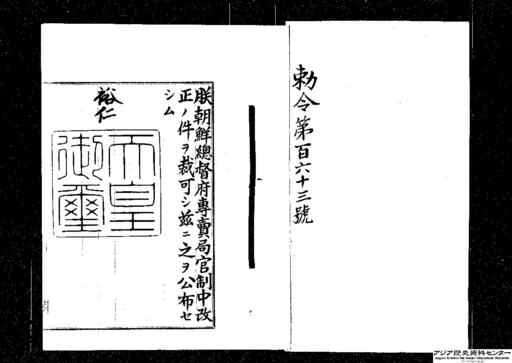 勅令第百六十三號
朕朝鮮總督府專賣局官制中改
正ノ件ヲ裁可シ茲ニ之ヲ公布セ
シム
裕仁
天皇
御璽
アジア歴史資料センター
Japan Center for Asian Historical Records